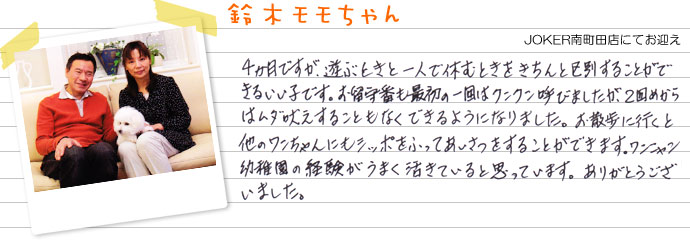 鈴木モモちゃん
JOKER南町田店にてお迎え
4ヵ月ですが、遊ぶときと一人で休むときをきちんと区別することがで
きるいい子です。お留守番も最初の一回はクンクン呼びましたが、2回めから
はムダ吠えすることもなくできるようになりました。お散歩に行くと
他のワンちゃんにもシッポをふってあいさつをすることができます。ワンニャン
幼稚園の経験がうまく活きていると思っています。ありがとうござ
いました。